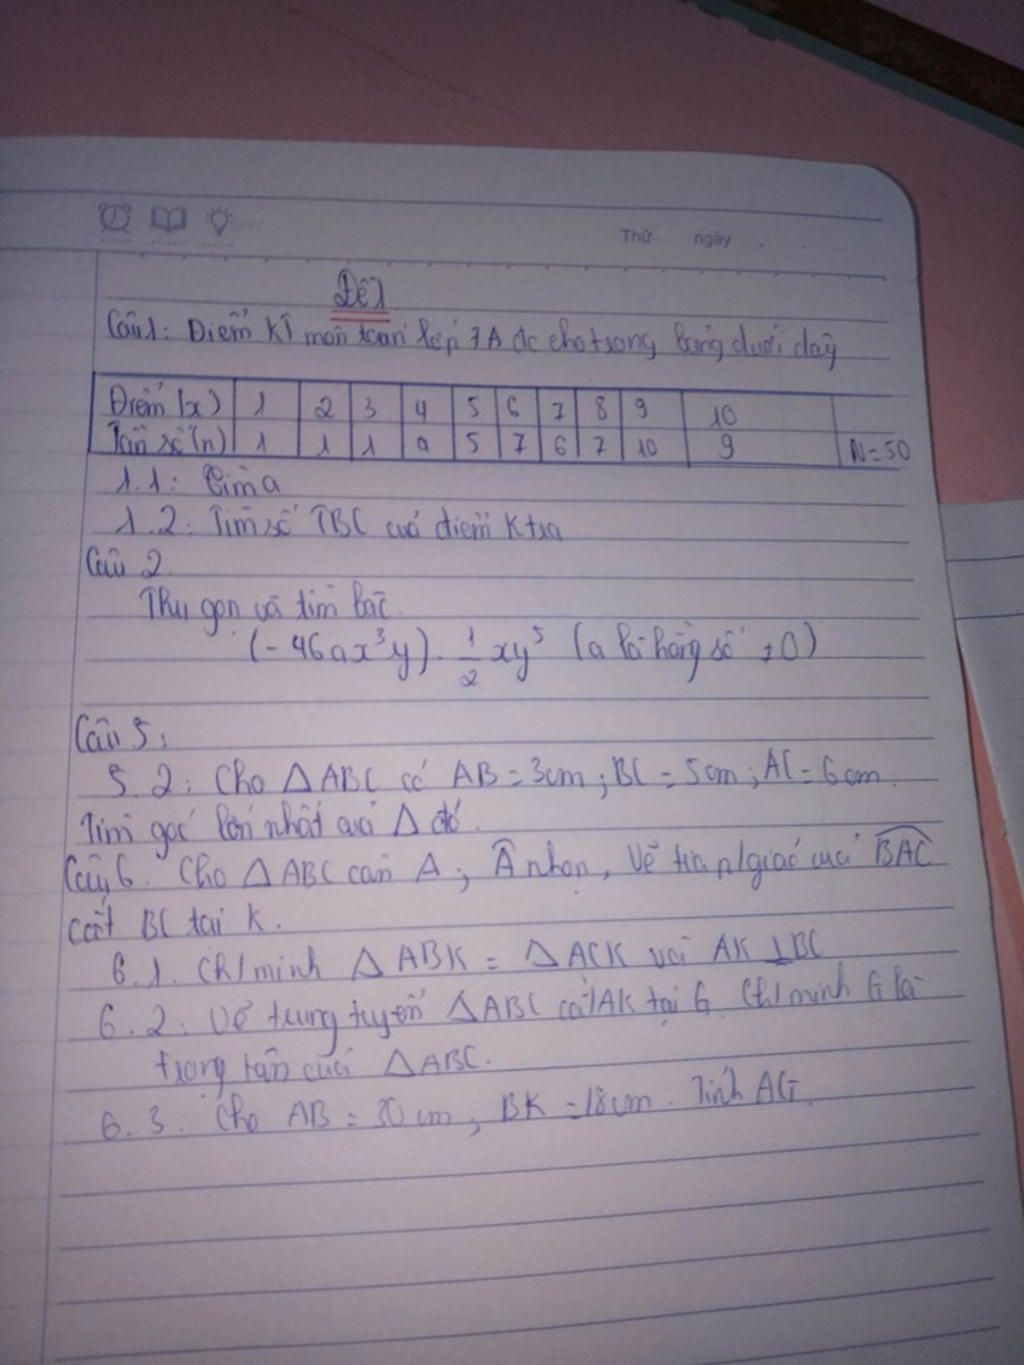 Thứ ngày
Đề 1
Câu 1: Điểm KT môn toán lớp 7A đc cho trong bảng dưới đây
Điểm (x) 1 2 3 4 5 6 7 8 9 10
Tần số (n) 1 1 1 a 5 7 6 7 10 9 N = 50
1.1: Tìm a
1.2: Tìm số TBC của điểm Ktra
Câu 2.
Thu gọn và tìm bậc.
(-46ax³y). 1/2 xy⁵ (a là hằng số ≠ 0)
Câu 5:
5.2: Cho △ ABC có AB = 3cm; BC = 5cm; AC = 6cm.
Tìm góc lớn nhất của △ đó.
Câu 6. Cho △ ABC cân A; Â nhọn, Vẽ tia p/giác của BAC
cắt BC tại K.
6.1. Ch/minh △ ABK = △ ACK và AK ⊥ BC
6.2: Vẽ trung tuyến △ABC cắt AK tại G. Ch/minh G là
trọng tâm của △ABC.
6.3. Cho AB = 30cm, BK = 18cm. Tính AG.